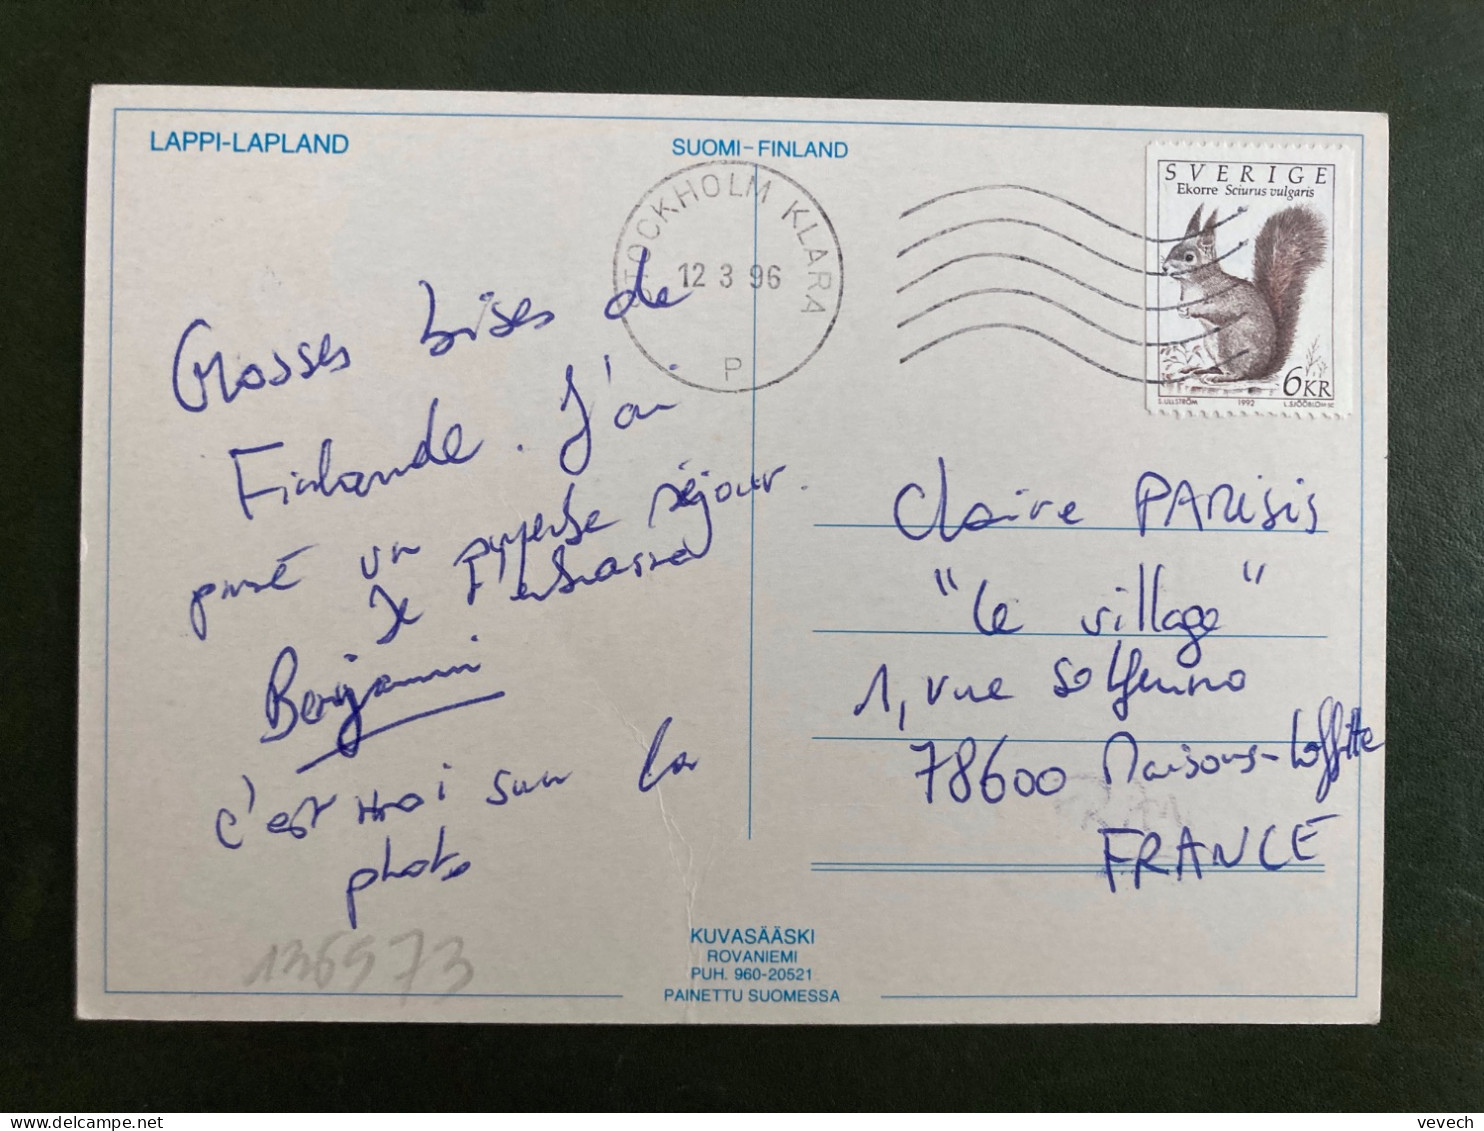 LAPPI-LAPLAND
SUOMI-FINLAND
STOCKHOLM KLARA
12 3 96
P
SVERIGE
Ekorre Sciurus vulgaris
6KR
S. ULLSTRÖM 1992 L. SJÖÖBLOM SC
Grosses bises de
Finlande. J'ai
passé un superbe séjour.
Je t'embrasse
Benjamin
c'est moi sur la
photo
Claire PARISIS
"le village"
1, rue Solferino
78600 Maisons-Laffitte
FRANCE
136973
KUVASÄÄSKI
ROVANIEMI
PUH. 960-20521
PAINETTU SUOMESSA
vevech